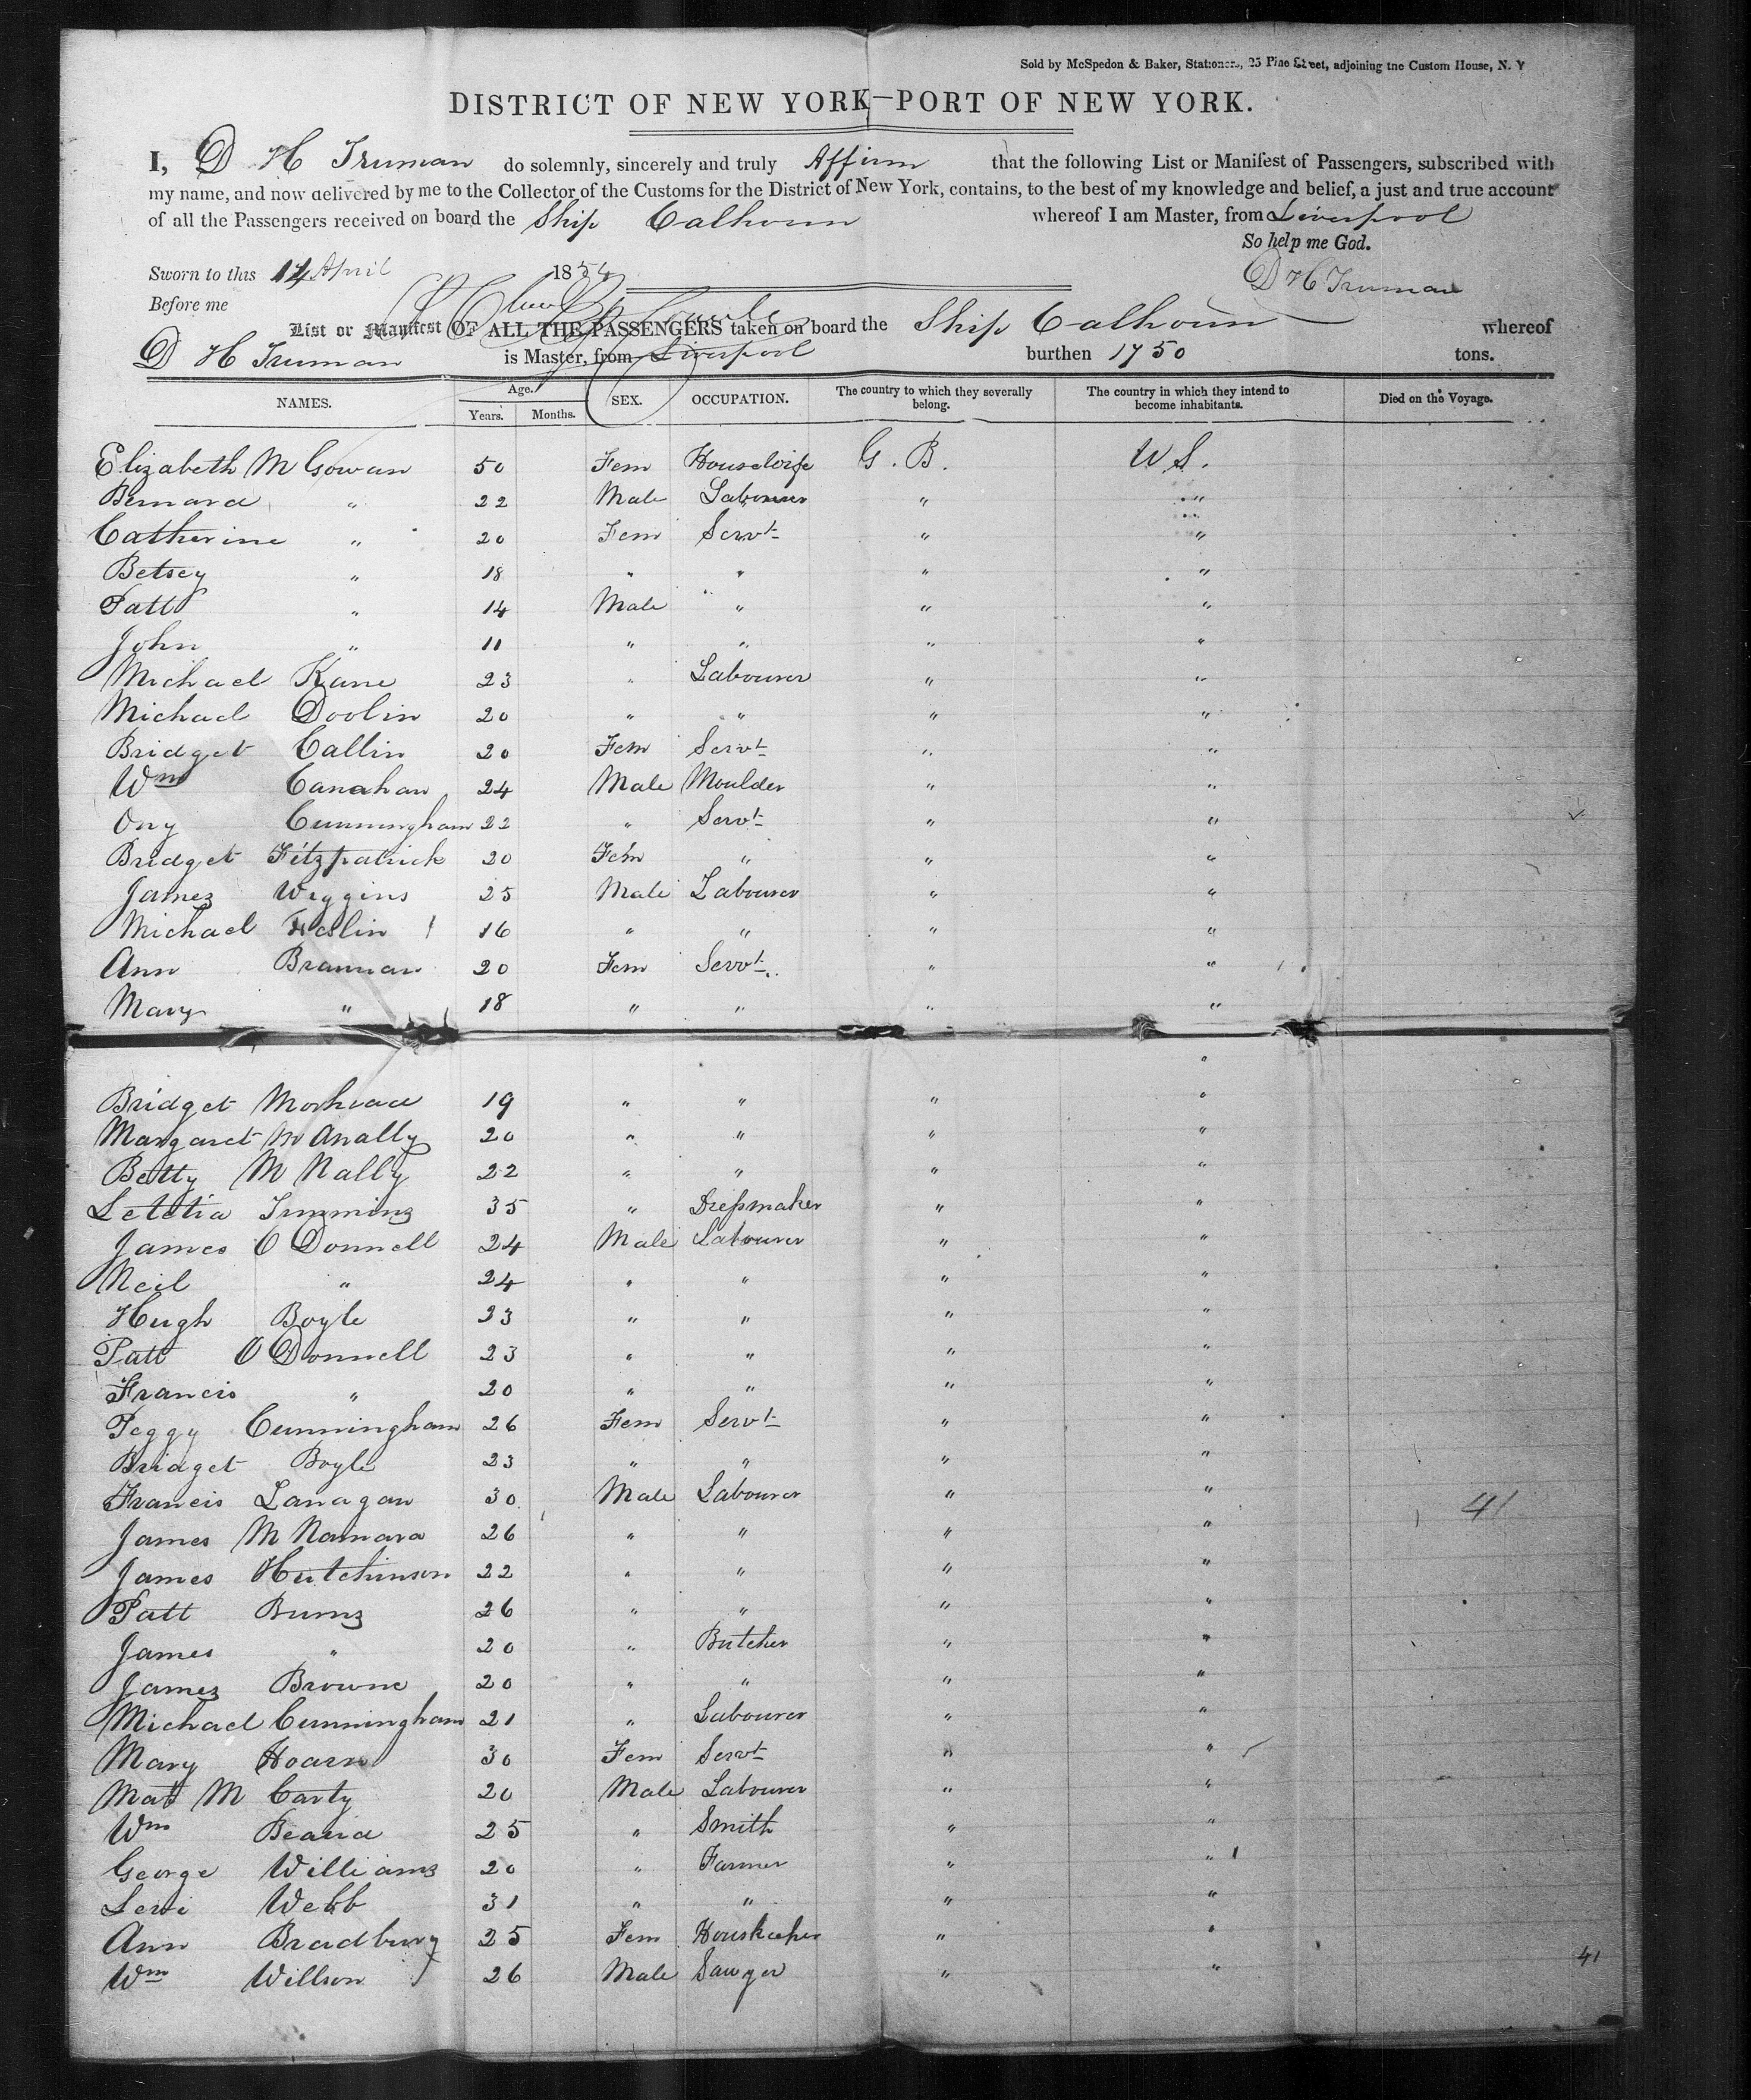 Sold by McSpedon & Baker, Stationers, 25 Pine Street, adjoining the Custom House, N. Y
DISTRICT OF NEW YORK—PORT OF NEW YORK.
I, D H Truman do solemnly, sincerely and truly Affirm that the following List or Manifest of Passengers, subscribed with
my name, and now delivered by me to the Collector of the Customs for the District of New York, contains, to the best of my knowledge and belief, a just and true account
of all the Passengers received on board the Ship Calhoun whereof I am Master, from Liverpool
So help me God.
Sworn to this 14 April 1854 D H Truman
Before me
List or Manifest OF ALL THE PASSENGERS taken on board the Ship Calhoun whereof
D H Truman is Master, from Liverpool burthen 1750 tons.
NAMES. Age. Years. Months. SEX. OCCUPATION. The country to which they severally belong. The country in which they intend to become inhabitants. Died on the Voyage.
Elizabeth M Gowan 50 Fem Housewife G. B. U S.
Bernard " 22 Male Labourer " "
Catherine " 20 Fem Servt " "
Betsey " 18 " " " "
Patt " 14 Male " " "
John " 11 " " " "
Michael Kane 23 " Labourer " "
Michael Doolin 20 " " " "
Bridget Callin 20 Fem Servt " "
Wm Canahan 24 Male Moulder " "
Ony Cunningham 22 " Servt " "
Bridget Fitzpatrick 20 Fem " " "
James Wiggins 25 Male Labourer " "
Michael 16 " " " "
Ann Brannan 20 Fem Servt " "
Mary " 18 " " " "
"
Bridget 19 " " " "
Margaret M Anally 20 " " " "
Betty M Nally 22 " " " "
Letetia Timmins 35 " Dressmaker " "
James O Donnell 24 Male Labourer " "
Neil " 24 " " " "
Hugh Boyle 23 " " " "
Patt O Donnell 23 " " " "
Francis " 20 " " " "
Peggy Cunningham 26 Fem Servt " "
Bridget Boyle 23 " " " "
Francis Lanagan 30 Male Labourer " " 41
James M Namara 26 " " " "
James Hutchinson 22 " " " "
Patt Burns 26 " " " "
James " 20 " Butcher " "
James Browne 20 " " " "
Michael Cunningham 21 " Labourer " "
Mary Hoarn 30 Fem Servt " "
Mat M Carty 20 Male Labourer " "
Wm Beard 25 " Smith " "
George Williams 20 " Farmer " "
Levi Webb 31 " " " "
Ann Bradbury 25 Fem Houskeeper " "
Wm Willson 26 Male Sawyer " " 41